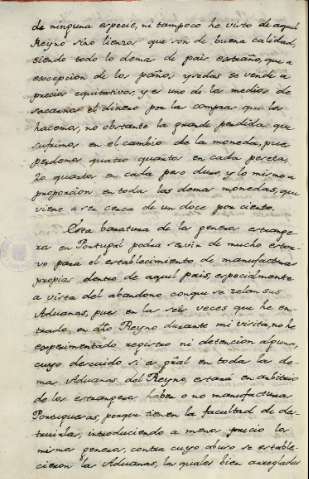 de ninguna especie, ni tampoco he visto de aquel
Reyno sino lienzos que son de buena calidad,
siendo todo lo demas de pais estraño, que a
excepcion de los paños, y sedas se vende a
precios equitativos, y es uno de los medios de
sacarnos el dinero por la compra que les
hacemos, no obstante la grande perdida que
sufrimos en el cambio de la moneda, pues
perdemos quatro quartos en cada peseta,
20 quartos en cada peso duro y lo mismo a
proporcion en todas las demas monedas, que
viene a ser cerca de un doce por ciento.
Esta baratura de los generos estrange-
ros en Portugal podra servir de mucho estor-
vo para el establecimiento de manufacturas
propias dentro de aquel pais, especialmente
a vista del abandono con que se zelan sus
Aduanas, pues en las seis veces que he en-
trado en dho Reyno durante mi visita, no he
experimentado registro ni detencion alguna,
cuyo descuido si es gūal en todas las de-
mas Aduanas del Reyno, estará en arbitrio
de los estrangeros haber o no manufacturas
Portuguesas, porque tienen la facultad de des-
truirlas, introduciendo a menos precio los
mismos generos, contra cuyo abuso se estable-
cieron las Aduanas, las quales bien arregladas